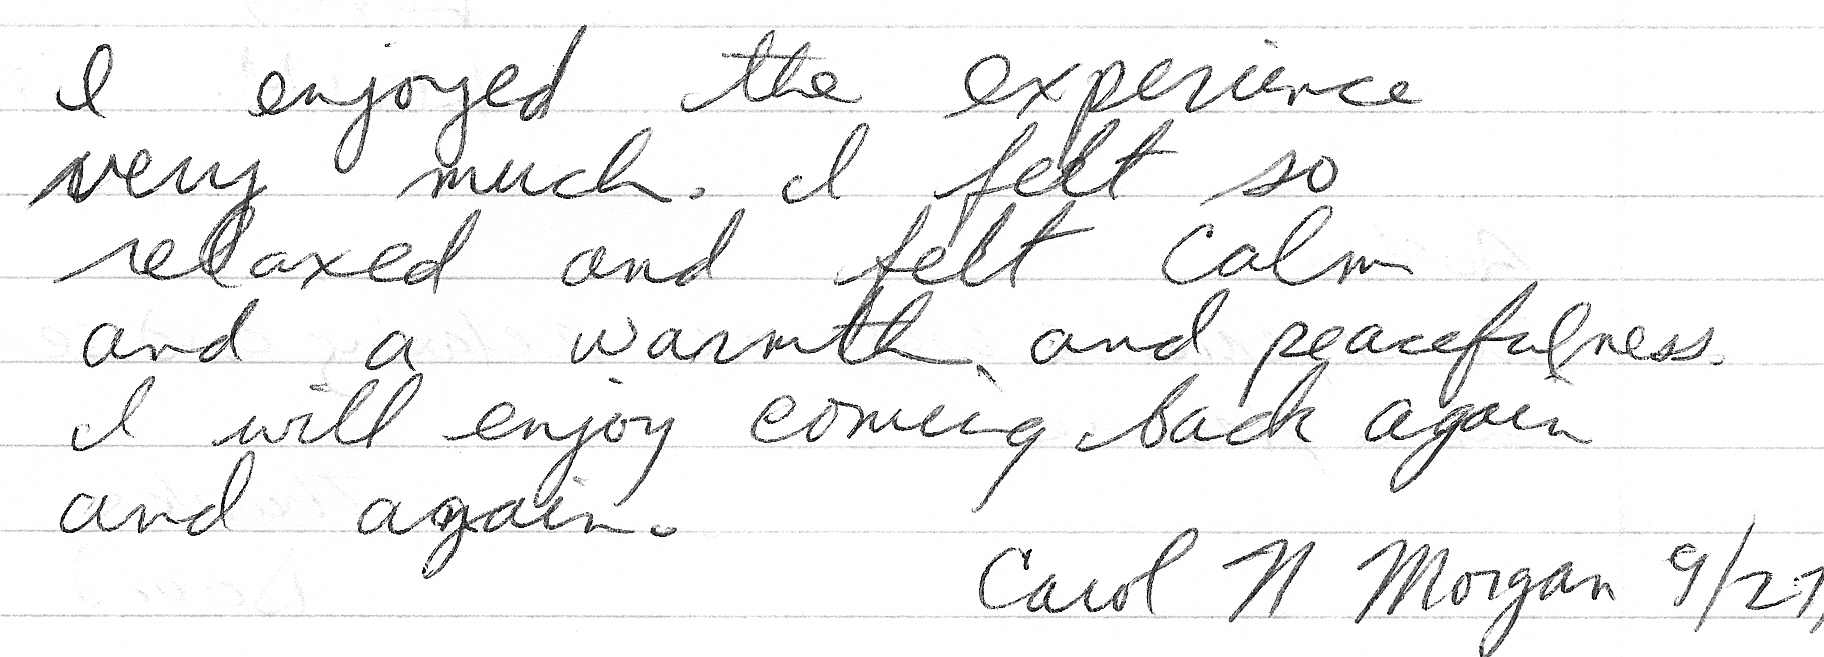 I enjoyed the experience
very much. I felt so
relaxed and felt calm
and a warmth, and peacefulness.
I will enjoy coming back again
and again.
Carol N Morgan 9/27/